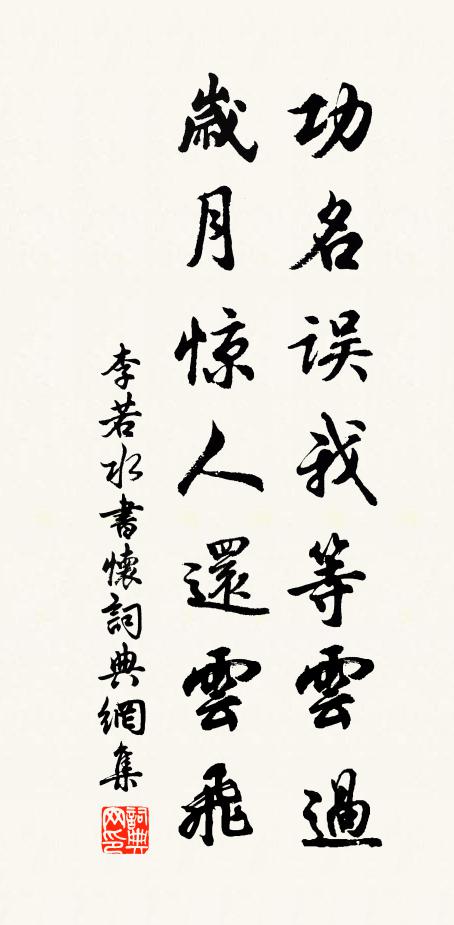 功名误我等雲過
歲月惊人還雲飛
李若水書懷詞典網集
詞典网印